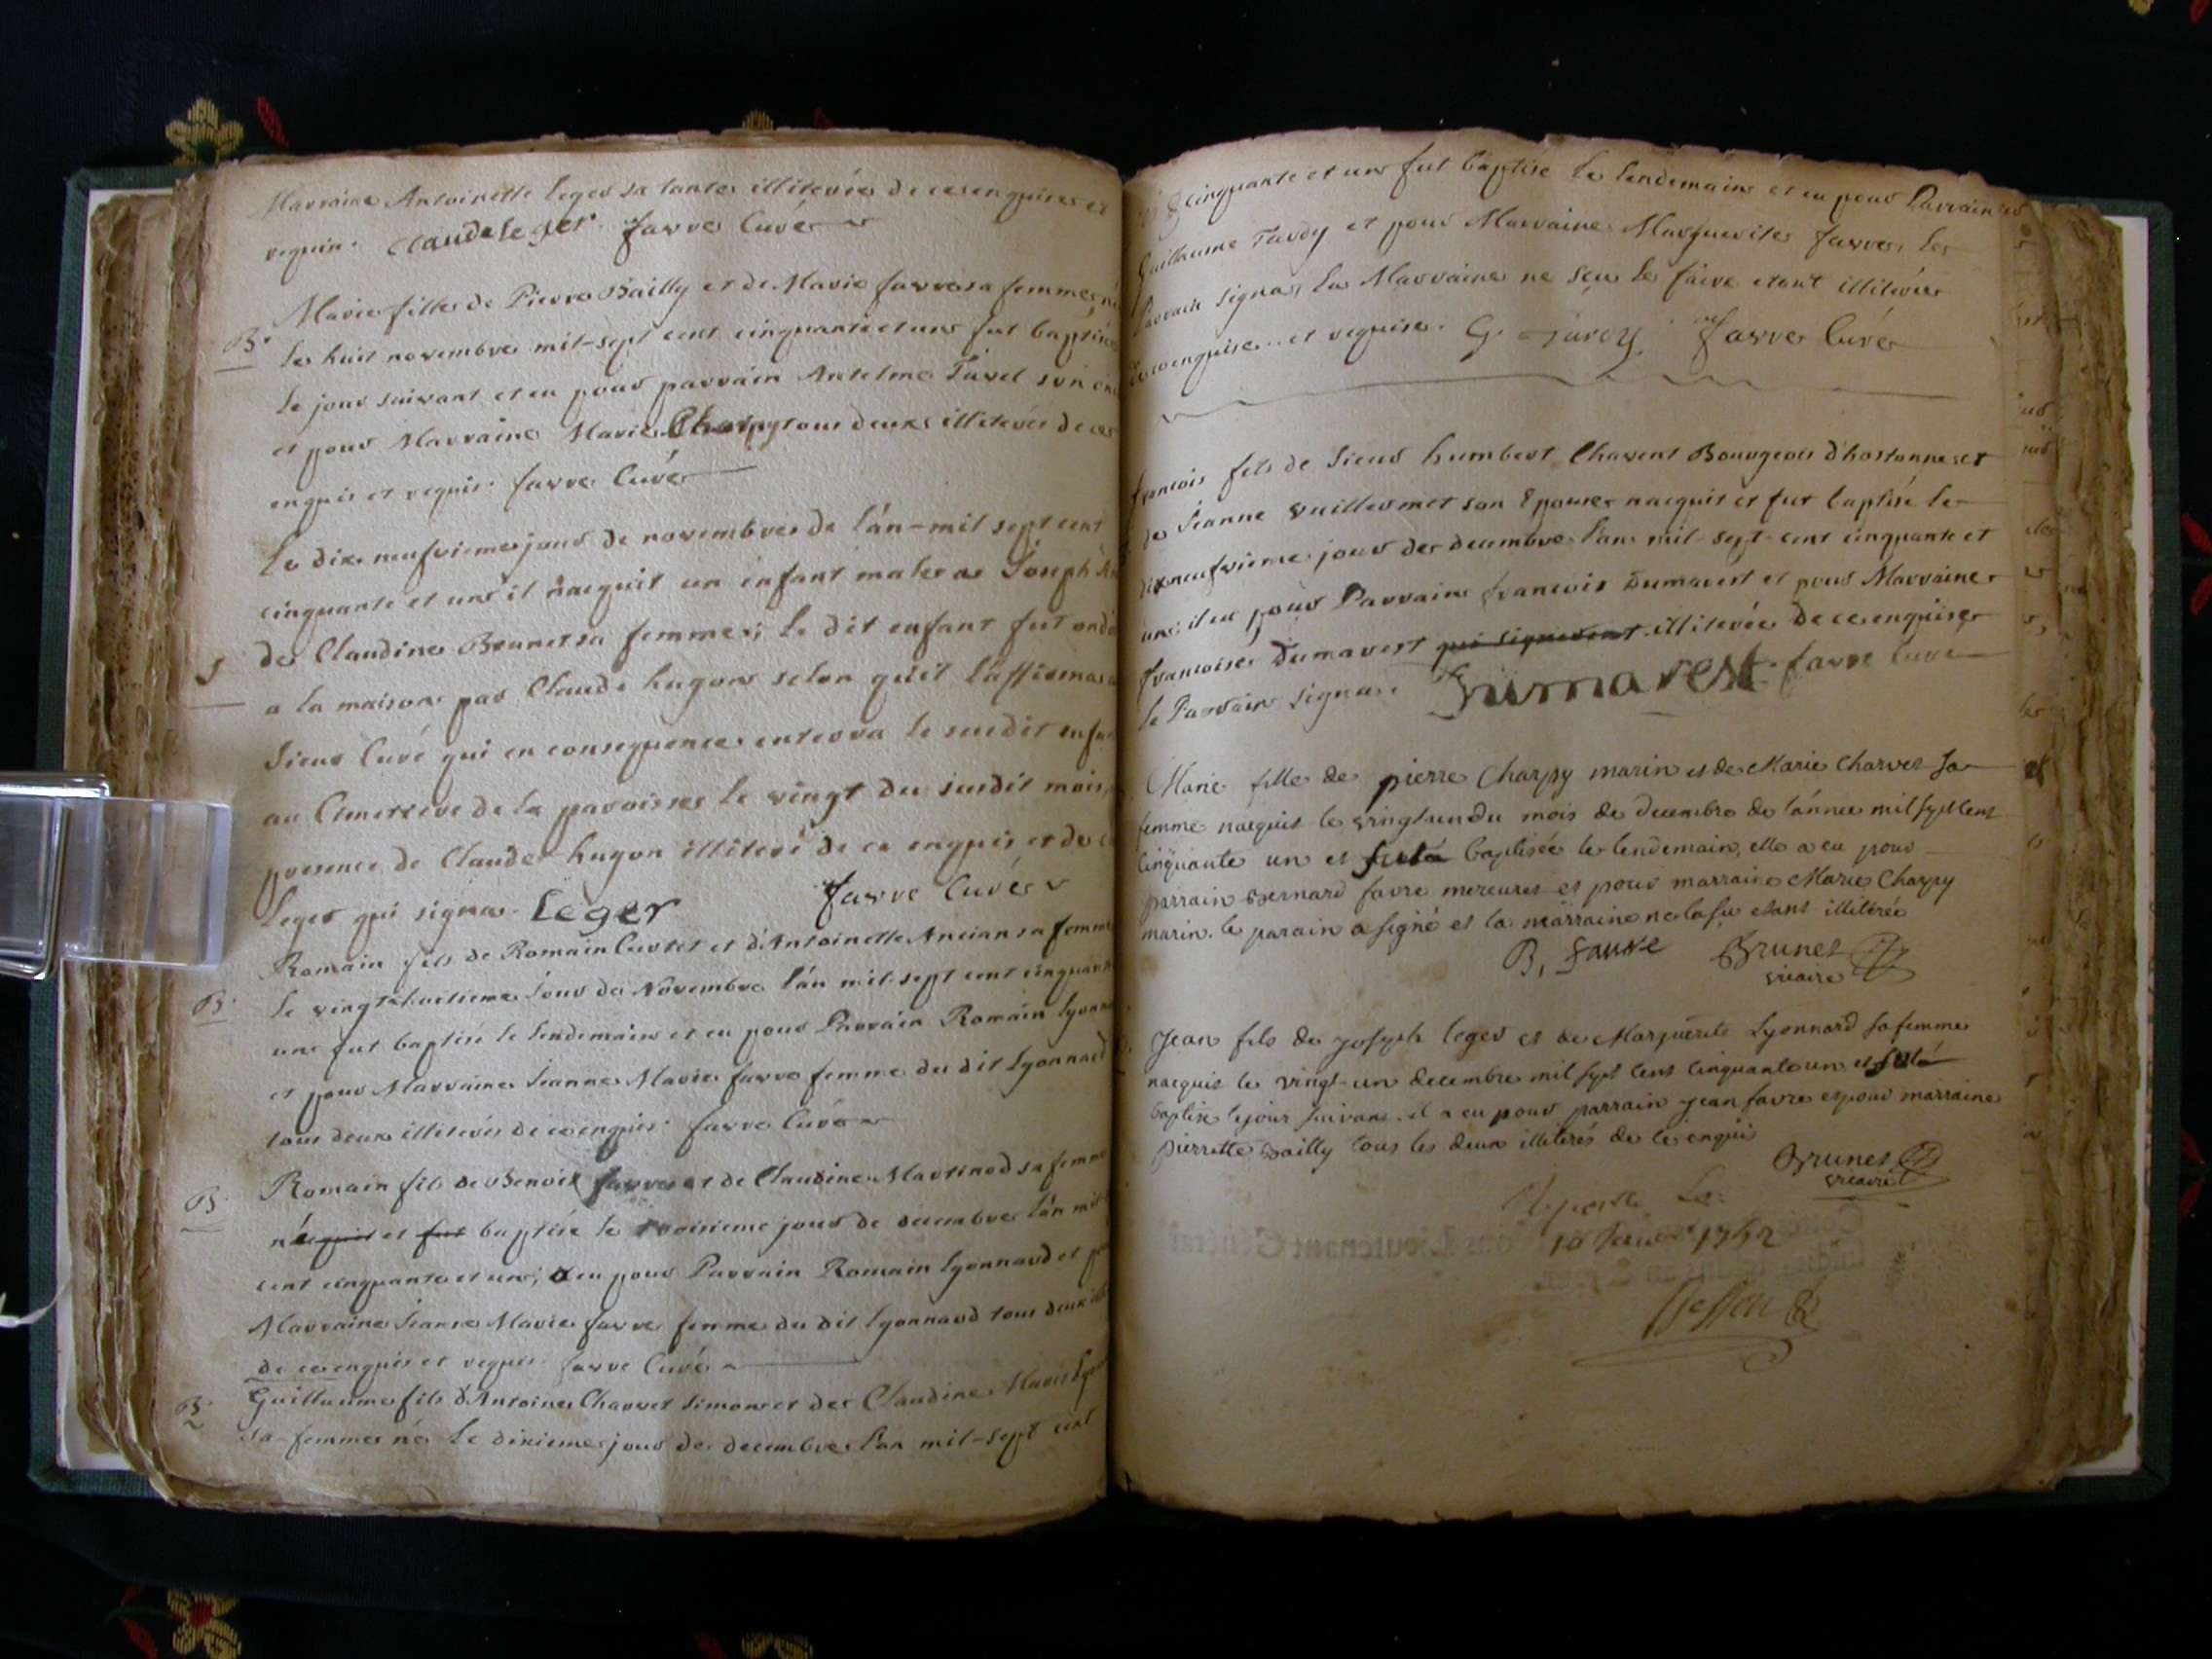 Marraine Antoinette leger sa tante illiterée de ce enquise et
requise. Claude leger. favre Curé
Marie fille de Pierre Bailly et de Marie favre sa femme, née
B. le huit novembre mil-sept cent cinquante et un fut baptisée
le jour suivant et eu pour parrain Antelme Tavel son
et pour Marraine Marie Charpy tous deux illiterés de ce
enquis et requis. favre Curé
Le dix neufvieme jour de novembre de l'an-mil sept cent
cinquante et un il nacquit un enfant male a Joseph
de Claudine Brunet sa femme; le dit enfant fut
S a la maison par Claude hugon selon qu'il l'affirma
Sieur Curé qui en consequence enterra le susdit
au Cimetiere de la paroisse le vingt du susdit mois,
presence de Claude hugon illiteré de ce enquis et de
leger qui signa. leger favre Curé
Romain fils de Romain Curtet et d'Antoinette Ancian sa femme
B. le vingt huitieme Jour de Novembre l'an mil sept cent cinquante
un fut baptisé le lendemain et eu pour Parrain Romain
et pour Marraine Jeanne Marie favre femme du dit lyonnard
tous deux illiterés de ce enquis. favre Curé
B. Romain fils de Benoit favre et de Claudine Martinod sa femme
nacquit et fut baptisé le troisieme jour de decembre l'an mil
cent cinquante et un; a eu pour Parrain Romain lyonnard et
Marraine Jeanne Marie favre femme du dit lyonnard tous deux
de ce enquis et requis. favre Curé
B. Guillaume fils d'Antoine Charvet Simon et de Claudine Marie
sa femme né le dixieme jour de decembre l'an mil-sept cent
cinquante et un fut baptisé le lendemain et eu pour Parrain
Guillaume Tardy et pour Marraine Marguerite favre, le
Parrain signa, la Marraine ne sçu le faire etant illiterée
de ce enquise et requise. G. Tardy. favre Curé
francois fils de Sieur humbert Charent Bourgeois d'hostonne et
de Jeanne vuillermet son Epouse nacquit et fut baptisé le
dix neufvieme jour de decembre l'an mil-sept-cent cinquante et
un: il eu pour Parrain francois Dumarest et pour Marraine
francoise Dumarest qui signerent illiterée de ce enquise
le Parrain signa. Dumarest. favre Curé
Marie fille de pierre Charpy marin et de Marie Charvet Sa
femme nacquit le vingt un du mois de Decembre de l'année mil sept Cent
Cinquante un et fut baptisée le lendemain, elle a eu pour
parrain Bernard favre mercures et pour marraine Marie Charpy
marin. le parain a signé et la marraine ne la su etant illiterée
B. favre Brunet
vicaire
Jean fils de Joseph leger et de Marguerite Lyonnard sa femme
nacquit le vingt-un decembre mil sept Cent Cinquante un et fut
baptisé le jour suivant. il a eu pour parrain Jean favre et pour marraine
pierrette Bailly tous les deux illiterés de ce enquis
Brunet
vicaire
10 1752